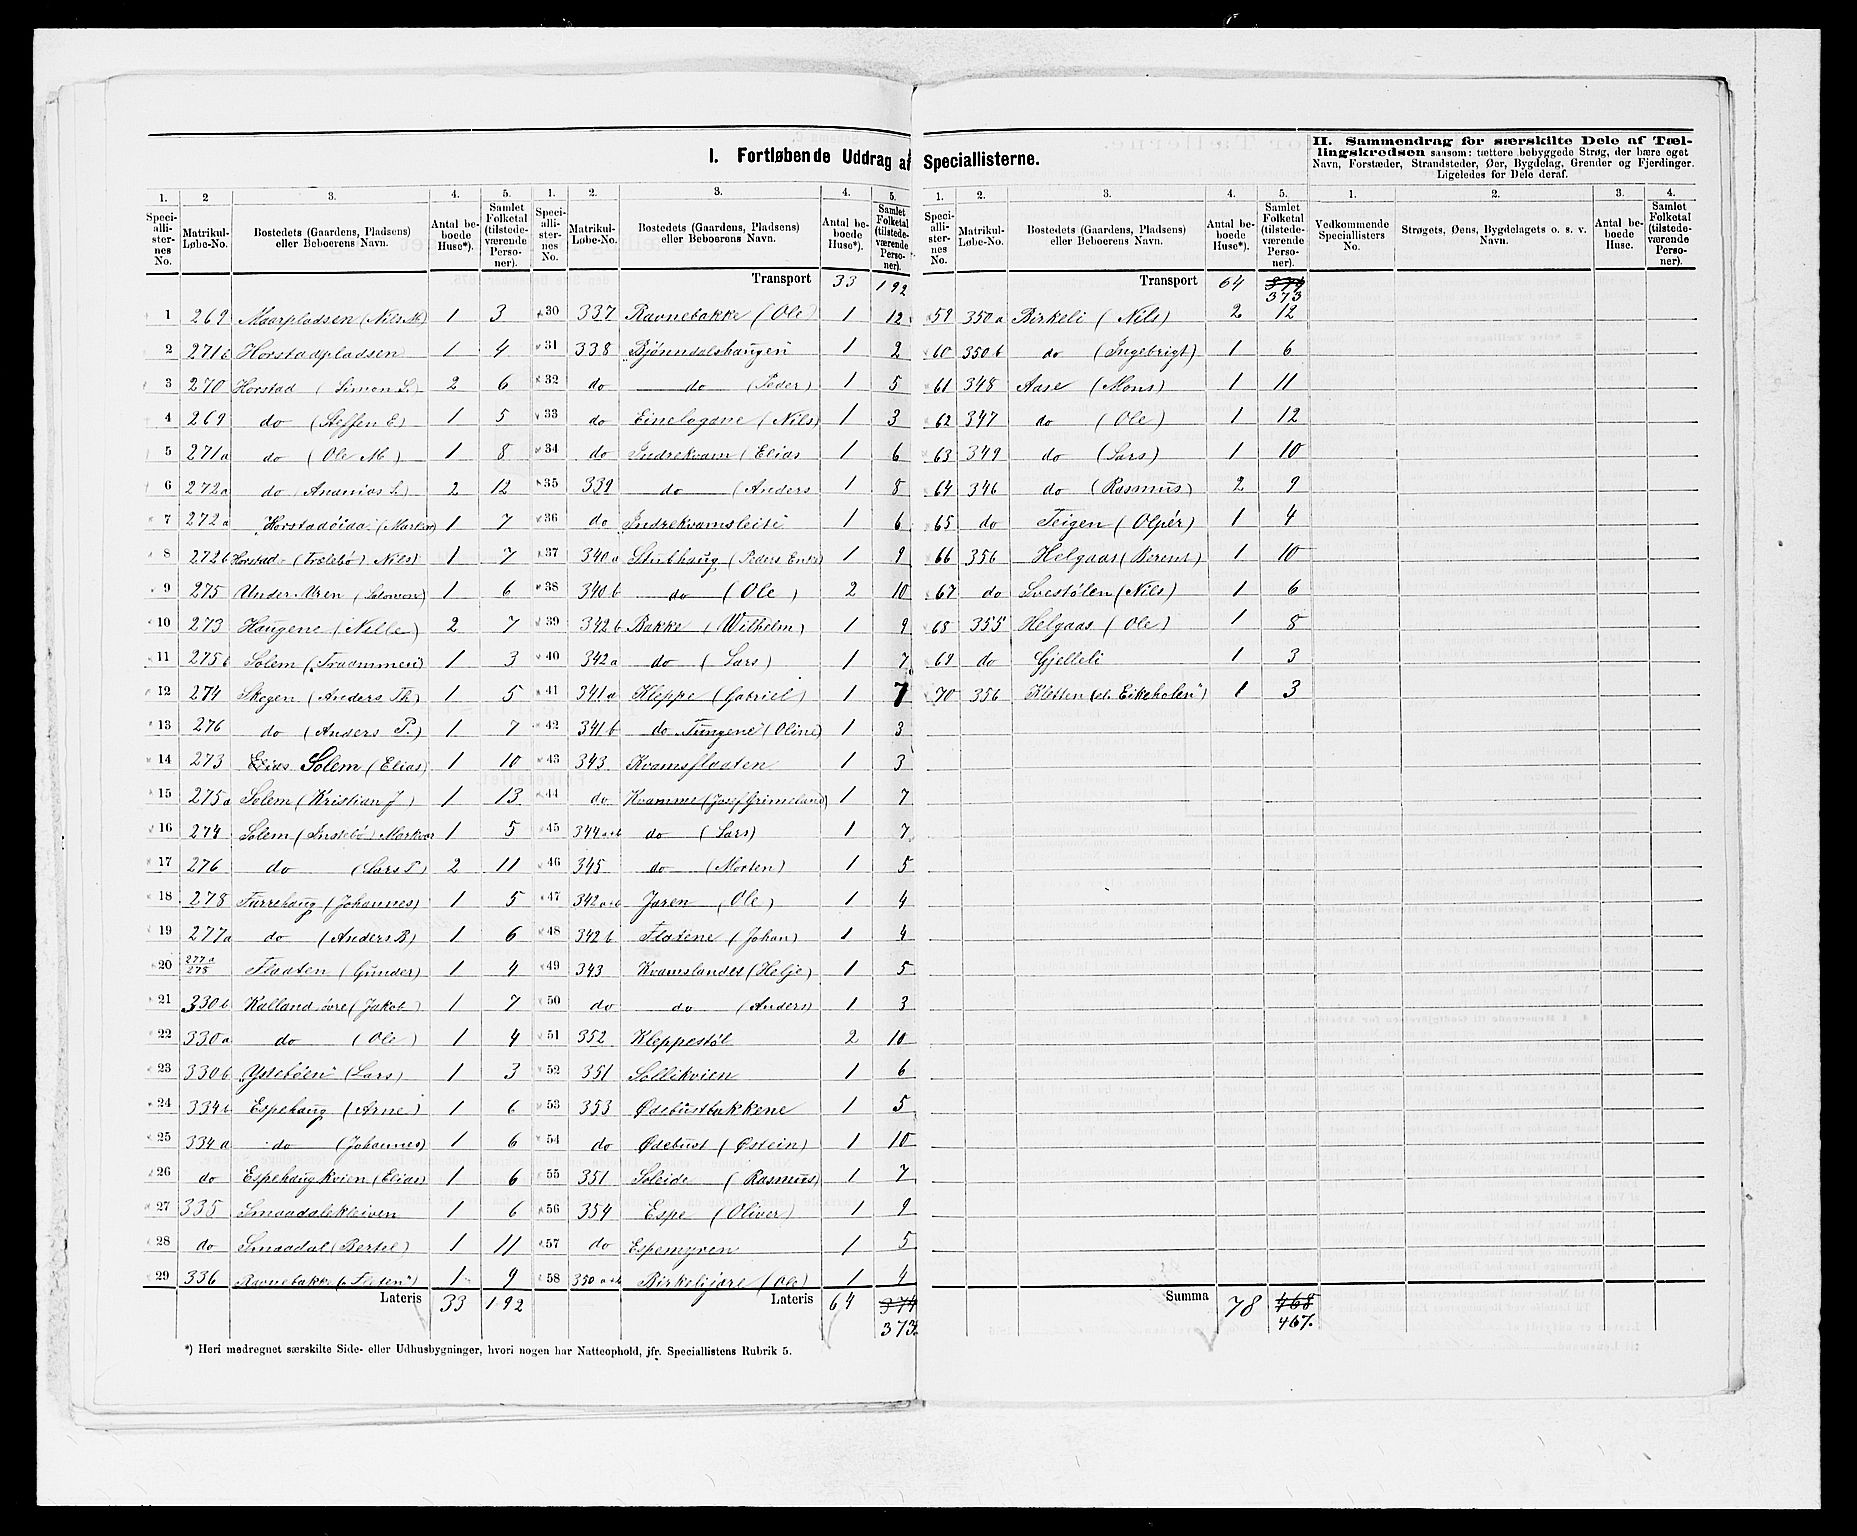 I. Fortløbende Uddrag af Speciallisterne.
II. Sammendrag for særskilte Dele af Tæl-
lingskredsen saasom: tættere bebyggede Strøg, der bære eget
Navn, Forstæder, Strandsteder, Øer, Bygdelag, Grender og Fjerdinger.
Ligeledes for Dele deraf.
1. 2 3. 4. 5. 1. 2. 3. 4. 5. 1. 2. 3. 4. 5. 1. 2. 3. 4.
Speciallisternes No. Matrikul-Løbe-No. Bostedets (Gaardens, Pladsens) eller Beboerens Navn. Antal beboede Huse*). Samlet Folketal (tilstedeværende Personer).
Speciallisternes No. Matrikul-Løbe-No. Bostedets (Gaardens, Pladsens) eller Beboerens Navn. Antal beboede Huse*). Samlet Folketal (tilstedeværende Personer).
Speciallisternes No. Matrikul-Løbe-No. Bostedets (Gaardens, Pladsens) eller Beboerens Navn. Antal beboede Huse*). Samlet Folketal (tilstedeværende Personer).
Vedkommende Speciallisters No. Strøgets, Øens, Bygdelagets o. s. v. Navn. Antal beboede Huse. Samlet Folketal (tilstedeværende Personer).
1 269 Maarpladsen (Nils M) 1 3
2 271b Horstadpladsen 1 4
3 270 Horstad (Simon S.) 2 6
4 269 do (Steffen E) 1 5
5 271a do (Ole M) 1 8
6 272a do (Ananias S.) 2 12
7 272a "Horstadeida" (Martin) 1 7
8 272b Horstad (Trælebø) Nils) 1 7
9 275 Under Uren (Salomon) 1 6
10 273 Haugene (Nille) 2 7
11 275b Solem (Traammen) 1 3
12 274 Skogen (Anders Th) 1 5
13 276 do (Anders P.) 1 7
14 273 Elias Solem (Elias) 1 10
15 275a Solem (Kristian J) 1 13
16 274 Solem (Instebø) Markvar 1 5
17 276 do (Lars P) 2 11
18 278 Furrehaug (Johannes) 1 5
19 277a do (Anders B) 1 6
20 277a/278 Flaaten (Gunder) 1 4
21 330b Kalland övre (Jakob) 1 7
22 330a do (Ole) 1 4
23 330b "Ystebøen" (Lars) 1 3
24 334b Espehaug (Arne) 1 6
25 334a do (Johannes) 1 6
26 do Espehaugkvien (Elias) 1 6
27 335 Smaadalekleiven 1 6
28 do Smaadal (Bertel) 1 11
29 336 Ravnebakke ("Teeten") 1 9
Lateris 33 192
Transport 33 192
30 337 Ravnebakke (Ole) 1 12
31 338 "Bjönndalshaugen" 1 2
32 do do (Peder) 1 5
33 do Einelogane (Nils) 1 3
34 do Indrekvam (Elias 1 6
35 339 do (Anders 1 8
36 do Indrekvamsleite 1 6
37 340a Stubhaug (Peders Enke) 1 9
38 340b do (Ole) 2 10
39 342b Bakke (Wilhelm) 1 9
40 342a do (Lars) 1 7
41 341a Kleppe (Gabriel) 1 7
42 341b do "Tungene" (Oline) 1 3
43 343 Kvamsflaaten 1 3
44 do Kvamme (Josef Grimeland) 1 7
45 344a+b do (Lars) 1 7
46 345 do (Morten) 1 5
47 342a+b Jaren (Ole) 1 4
48 342b Flatene (Johan) 1 4
49 343 Kvamslandet (Helje) 1 5
50 do do (Anders) 1 3
51 352 Kleppestøl 2 10
52 351 Sollikvien 1 6
53 353 Ødebustbakkene 1 5
54 do Ødebust (Østein) 1 10
55 351 Soleide (Rasmus) 1 7
56 354 Espe (Oliver) 1 9
57 do Espemyren 1 5
58 350a+b Birkelijare (Ole) 1 4
Lateris 64 374
373.
Transport 64 374
373
59 350a Birkeli (Nils) 2 12
60 350b do (Ingebrigt) 1 6
61 348 Aase (Mons) 1 11
62 347 do (Ole) 1 12
63 349 do (Lars) 1 10
64 346 do (Rasmus) 2 9
65 do Teigen (Olpér) 1 4
66 356 Helgaas (Berent) 1 10
67 do Svestølen (Nils) 1 6
68 355 Helgaas (Ole) 1 8
69 do Gjelleli 1 3
70 356 Kletten (el. Eikeholen") 1 3
Summa 78 468
467.
*) Heri medregnet særskilte Side- eller Udhusbygninger, hvori nogen har Natteophold, jfr. Speciallistens Rubrik 5.